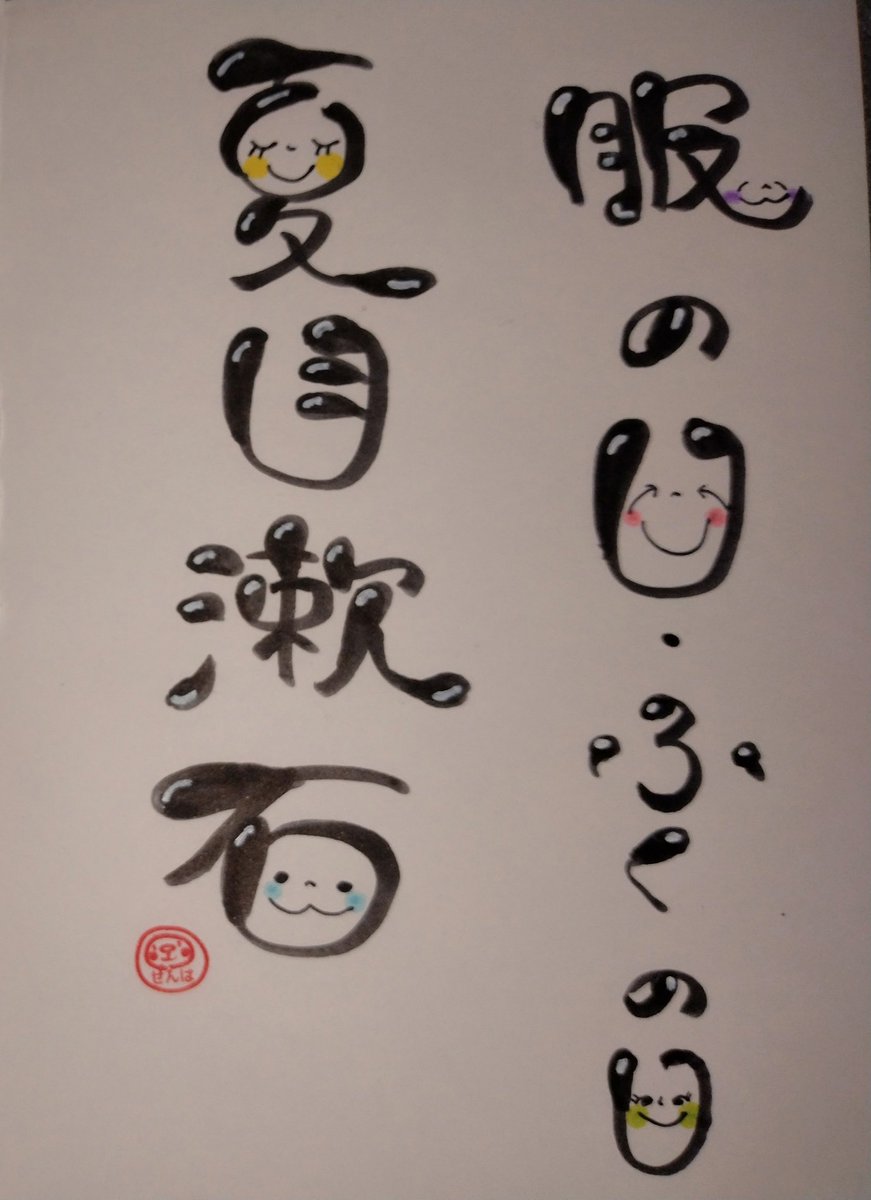 服の日・ふくの日
夏目漱石
ぜんは